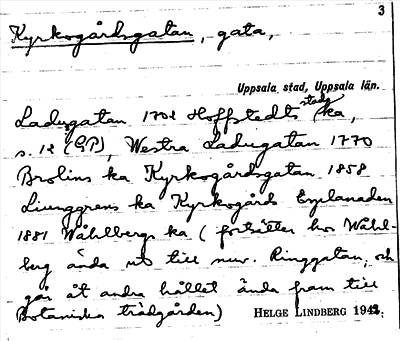 3
Kyrkogårdsgatan, gata,
Uppsala stad, Uppsala län.
Ladugatan 1702 Hoffstedts stads ka,
s. 12 (GP), Westra Ladugatan 1770
Brolins ka Kyrkogårdsgatan 1858
Ljunggrens ka Kyrkogårds Esplanaden
1881 Wåhlbergs ka (fortsätter hos Wåhl-
berg ända ut till nuv. Ringgatan, och
går åt andra hållet ända fram till
Botaniska trädgården)
HELGE LINDBERG 1942.